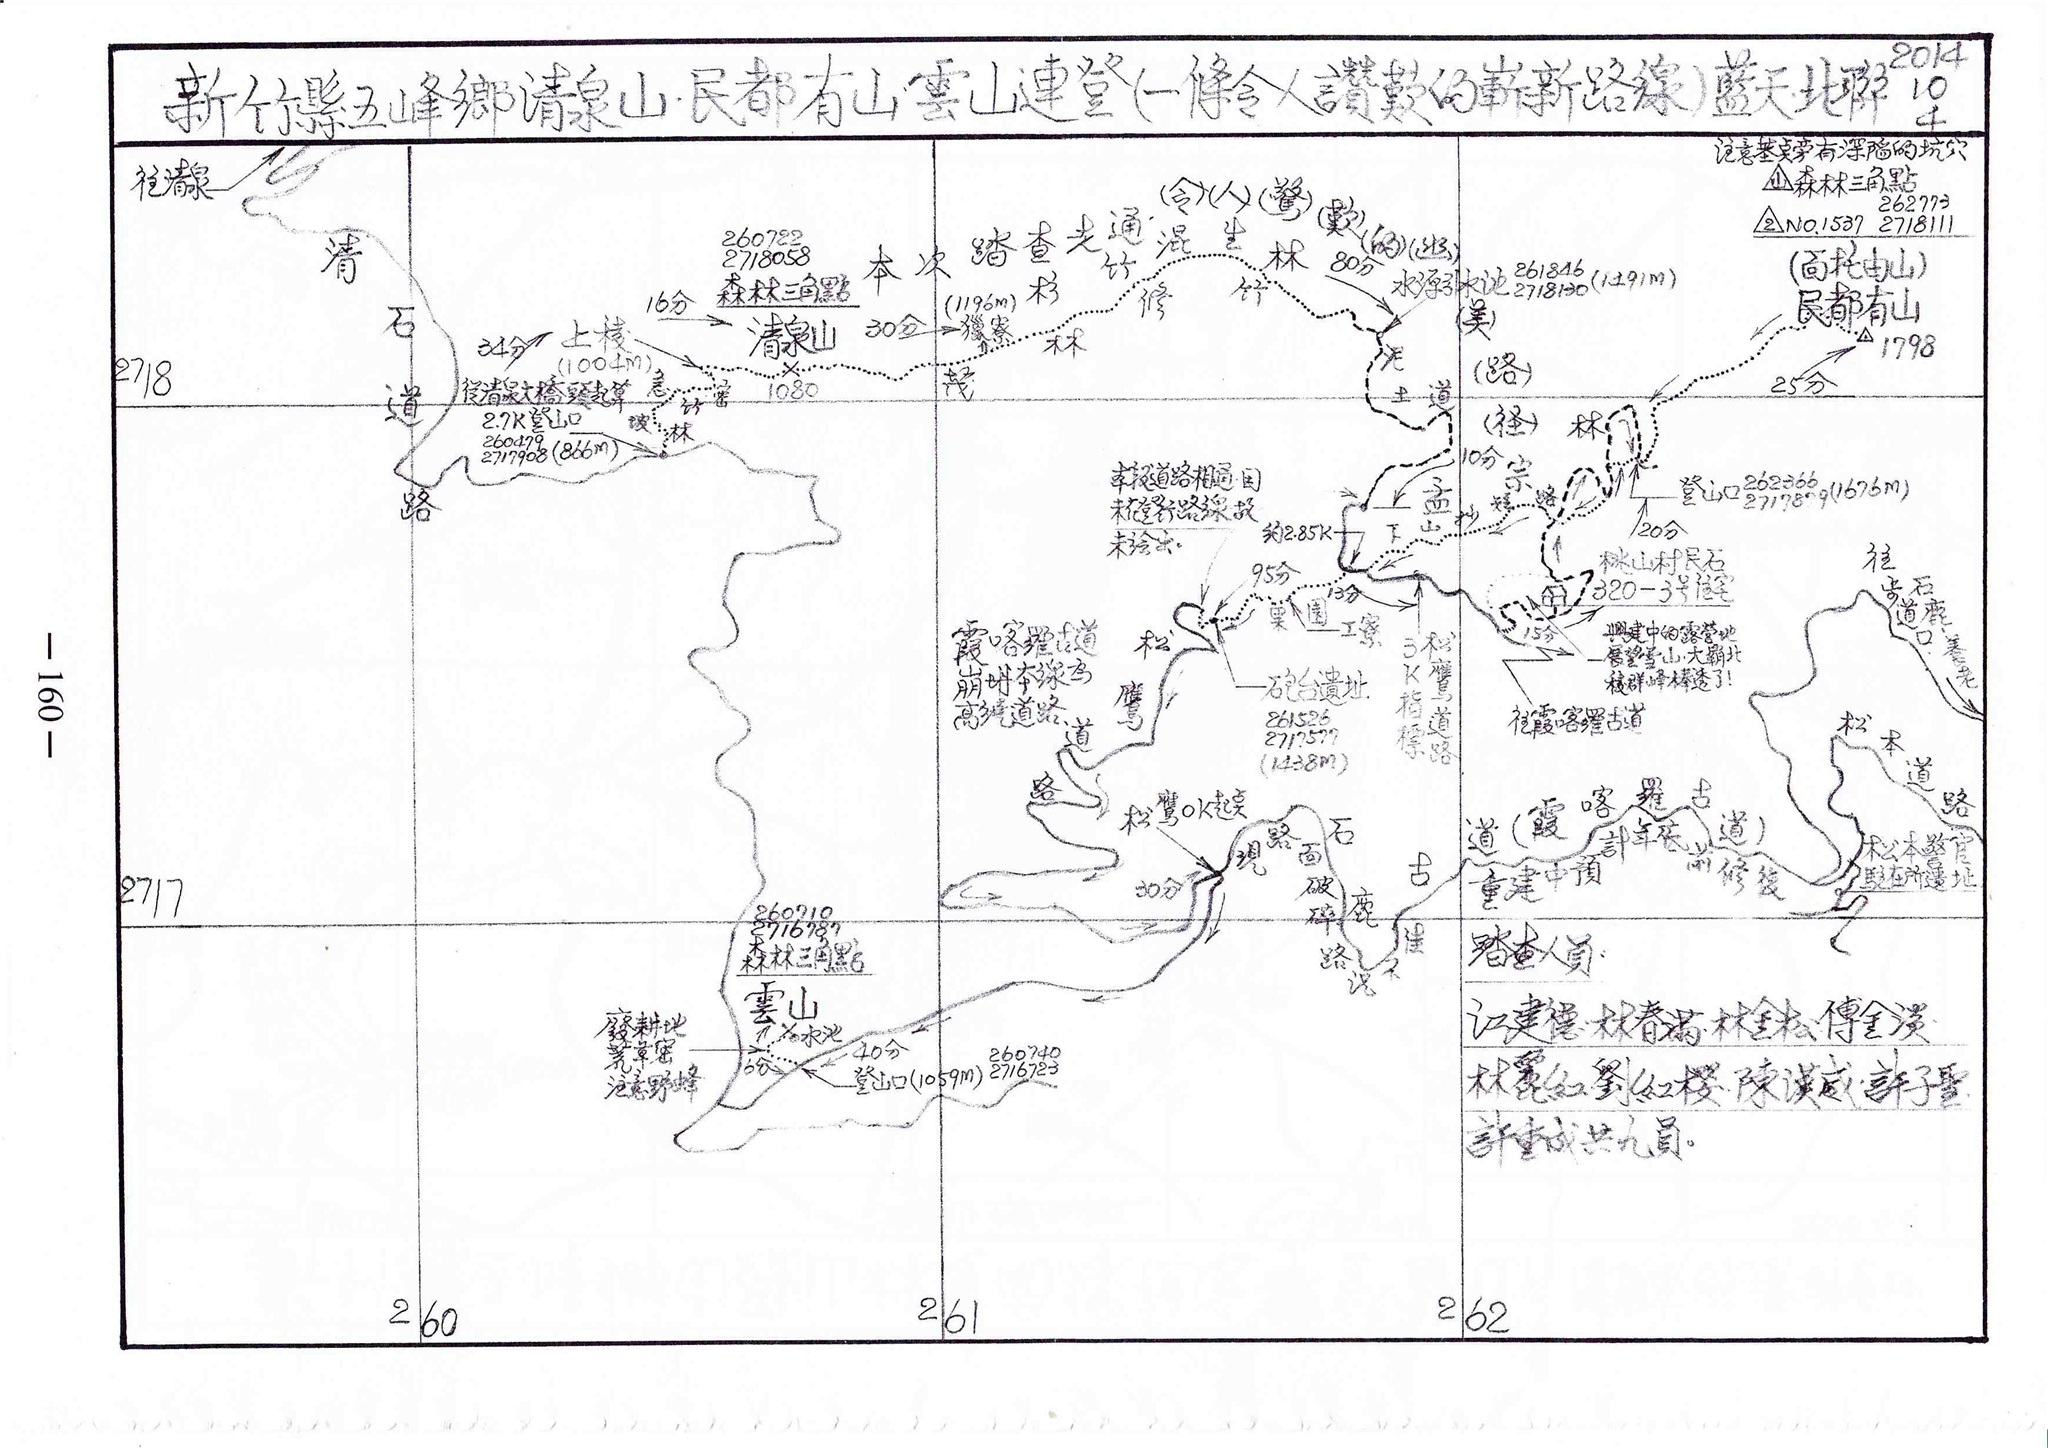 新竹縣五峰鄉清泉山·民都有山·雲山連登(一條令人讚歎的嶄新路線)藍天·北聯
2014
10
4
往清泉
清石道路
2718
34分
上稜
(1004m)
從清泉大橋頭起算
2.7K登山口
260479
2717908(866m)
急坡
竹林
密
16分
260722
2718058
森林三角點
清泉山
1080
30分
(1196m)
獵寮
本次踏查先通
(令)(人)(驚)(歎)(的)(出)
(美)(路)(徑)
杉林
竹
混生林
修
竹
茂
80分
水源引水池 261846
2718130(1491m)
泥土道
10分
注意基点旁有深陷的坑穴
森林三角點
262773
NO.1537 2718111
(高托由山)
民都有山
1798
25分
林
登山口 262366
2717879(1676m)
20分
孟宗
山下
約2.85K
本段道路相通·因
未登該路線故
未繪示。
95分
13分
果園
工寮
松鷹道路
3K指標
桃山村民石
320-3号住宅
15分
興建中的露營地
展望雪山·大霸北
稜群峰棒透了!
往霞喀羅古道
往石鹿·養老
步道口
霞喀羅古道
崩坍本線為
高繞道路
松鷹道路
砲台遺址
261526
2717577
(1438m)
松鷹0K起点
30分
現路面破碎路況不佳
石鹿古道(霞喀羅古道)
重建中預計年底前修復
松本道路
松本警官
駐在所遺址
2717
260710
2716787
森林三角點
雲山
水池
廢耕地
荒草密
注意野蜂
6分
40分
登山口(1059m) 260740
2716723
踏查人員:
江建德·林春滿·林金松·傅金漢·
林麗紅·劉紅櫻·陳漢威·許子聖·
許重成共九員。
260
261
262
— 160 —